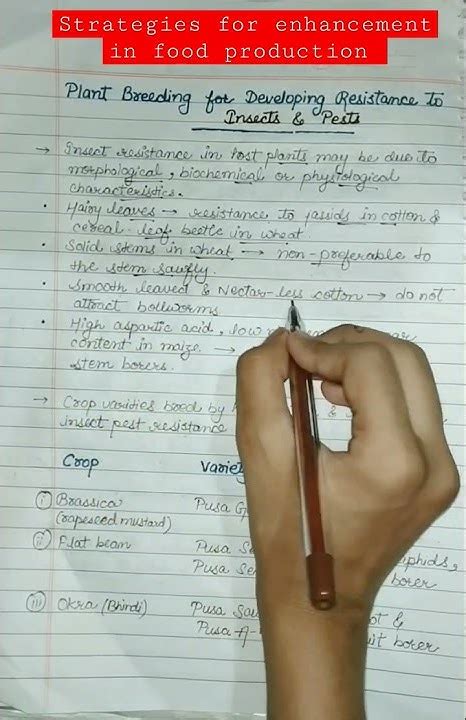 Strategies for enhancement
in food production
Plant Breeding for Developing Resistance to
Insects & Pests
→ Insect resistance in host plants may be due to
morphological, biochemical or physiological
characteristics.
• Hairy leaves → resistance to jassids in cotton &
cereal leaf beetle in wheat.
• Solid stems in wheat → non-preferable to
the stem sawfly.
• Smooth leaved & Nectar-less cotton → do not
attract bollworms
• High aspartic acid, low
content in maize →
stem borers.
→ Crop varities breed by &
insect pest resistance
Crop Variety
(i) Brassica Pusa G
(rapeseed mustard)
(ii) Flat bean Pusa Se phids,
Pusa Se borer
(iii) Okra (Bhindi) Pusa Saw ot &
Pusa A- uit borer